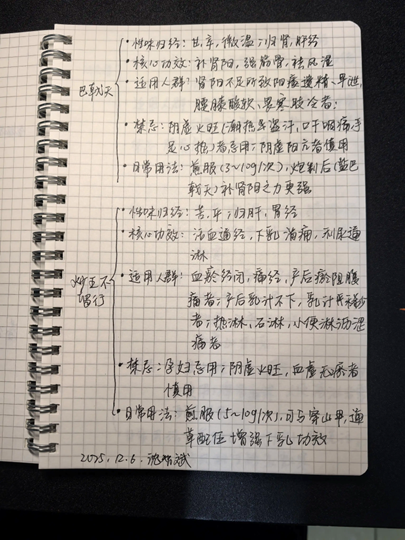 巴戟天
·性味归经：甘、辛，微温；归肾，肝经
·核心功效：补肾阳，强筋骨，祛风湿
·适用人群：肾阳不足所致阳痿遗精、早泄，
腰膝酸软、畏寒肢冷者；
·禁忌：阴虚火旺（潮热盗汗，口干咽痛手
足心热）者忌用；阴虚阳亢者慎用
·日常用法：煎服（3~10g/次），炮制后（盐巴
戟天）补肾阳之力更强
炒王不留行
·性味归经：苦，平；归肝，胃经
·核心功效：活血通经，下乳消痈，利尿通
淋
·适用人群：血瘀经闭，痛经，产后瘀阻腹
痛者；产后乳汁不下，乳汁
者；热淋，石淋，小便淋沥涩
痛者
·禁忌：孕妇忌用；阴虚火旺，血虚无瘀者
慎用
·日常用法：煎服（5~10g/次），可与穿山甲，通
草配伍增强下乳功效
2025.12.6